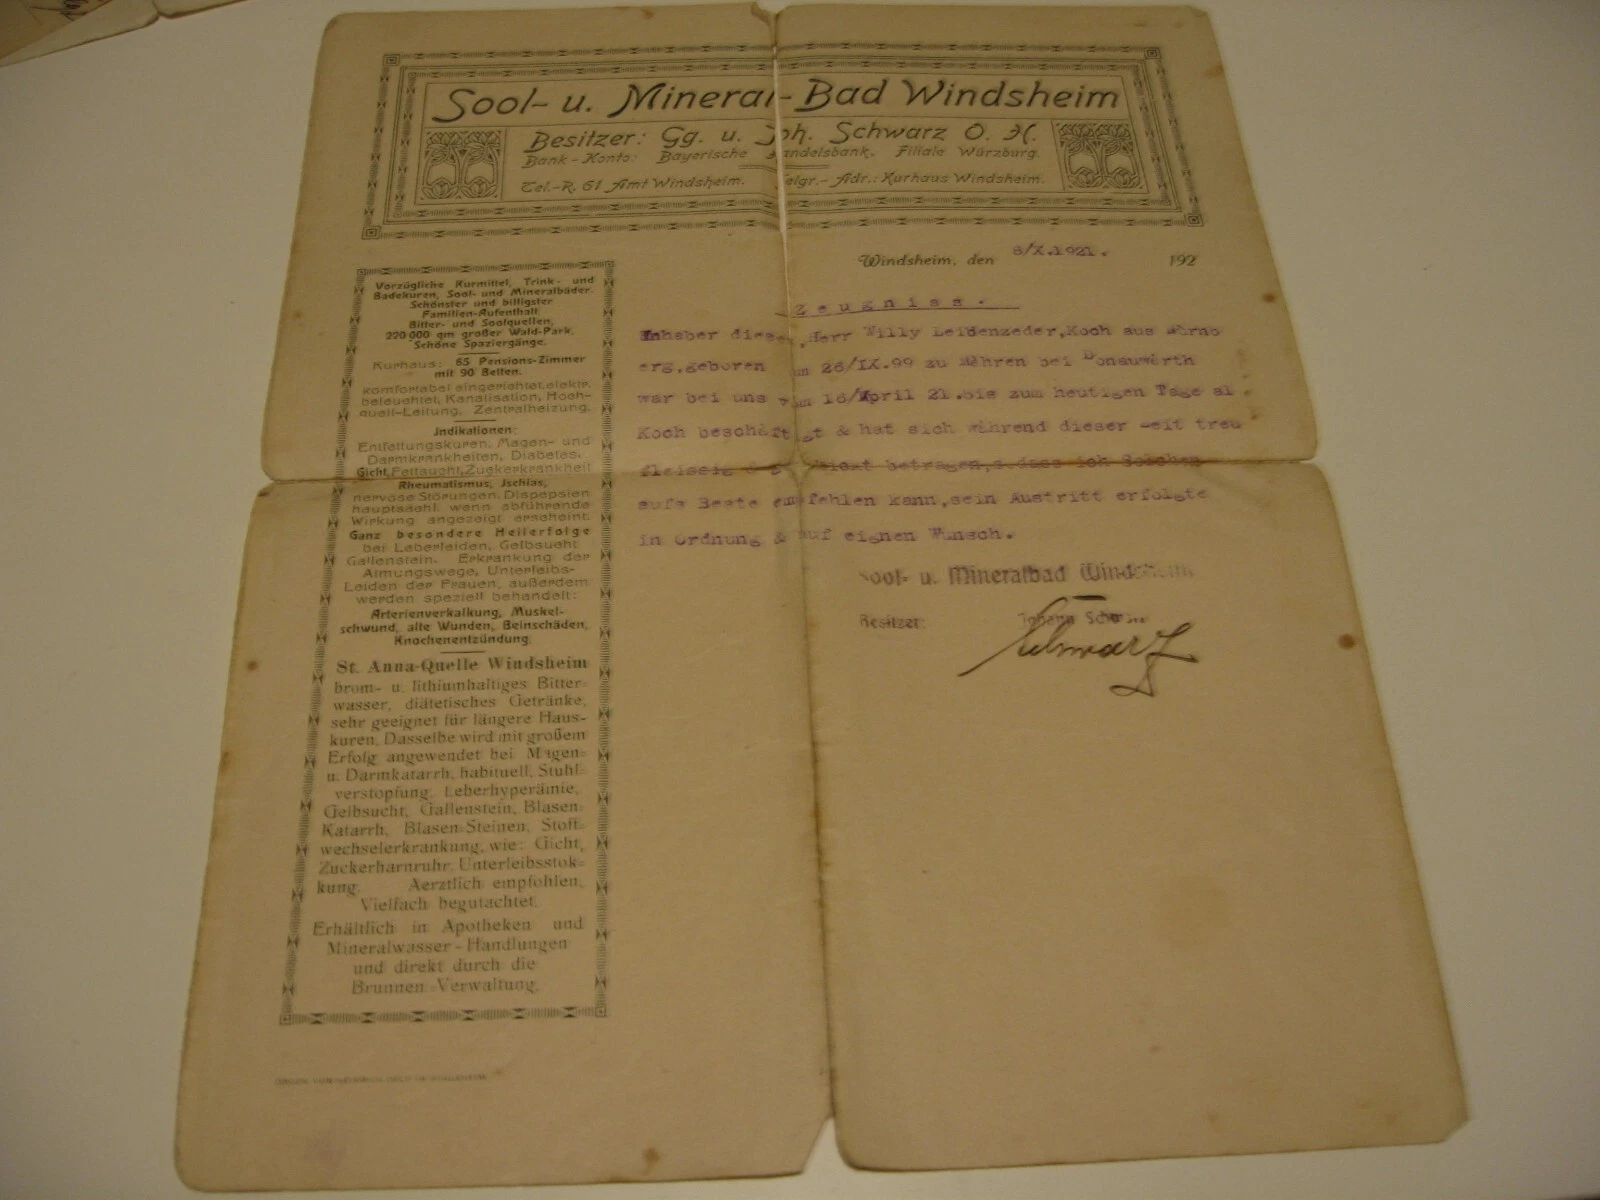 Sool- u. Mineral-Bad Windsheim
Besitzer: Gg. u. Joh. Schwarz O. H.
Bank-Konto: Bayerische Handelsbank, Filiale Würzburg.
Tel.-R. 61 Amt Windsheim. Telgr.-Adr.: Kurhaus Windsheim.
Windsheim, den 8/X.1921. 192
Vorzügliche Kurmittel, Trink- und
Badekuren, Sool- und Mineralbäder.
Schönster und billigster
Familien-Aufenthalt.
Bitter- und Soolquellen,
220 000 qm großer Wald-Park.
Schöne Spaziergänge.
Kurhaus: 65 Pensions-Zimmer
mit 90 Betten.
komfortabel eingerichtet, elektr.
beleuchtet, Kanalisation, Hoch-
quell-Leitung, Zentralheizung.
Indikationen:
Entfettungskuren, Magen- und
Darmkrankheiten, Diabetes,
Gicht, Fettsucht, Zuckerkrankheit
Rheumatismus, Jschias,
nervöse Störungen, Dispepsien
hauptsächl. wenn abführende
Wirkung angezeigt erscheint.
Ganz besondere Heilerfolge
bei Leberleiden, Gelbsucht
Gallenstein. Erkrankung der
Atmungswege, Unterleibs-
Leiden der Frauen, außerdem
werden speziell behandelt:
Arterienverkalkung, Muskel-
schwund, alte Wunden, Beinschäden,
Knochenentzündung.
St. Anna-Quelle Windsheim
brom- u. lithiumhaltiges Bitter-
wasser, diätetisches Getränke,
sehr geeignet für längere Haus-
kuren. Dasselbe wird mit großem
Erfolg angewendet bei Magen-
u. Darmkatarrh, habituell. Stuhl-
verstopfung, Leberhyperämie,
Gelbsucht, Gallenstein, Blasen-
Katarrh, Blasen-Steinen, Stoff-
wechselerkrankung, wie: Gicht,
Zuckerharnruhr, Unterleibsstok-
kung. Aerztlich empfohlen.
Vielfach begutachtet.
Erhältlich in Apotheken und
Mineralwasser-Handlungen
und direkt durch die
Brunnen-Verwaltung.
Zeugniss.
Inhaber dieses, Herr Willy Leidenzeder, Koch aus
erg, geboren am 26/IX.99 zu Möhren bei Donauwörth
war bei uns vom 16/April 21. bis zum heutigen Tage al
Koch beschäftigt & hat sich während dieser Zeit treu
fleissig & betragen, s.dass ich Solchen
aufs Beste empfehlen kann, sein Austritt erfolgte
in Ordnung & auf eignen Wunsch.
Sool- u. Mineralbad Windsheim
Besitzer: Johann Schwarz
Schwarz